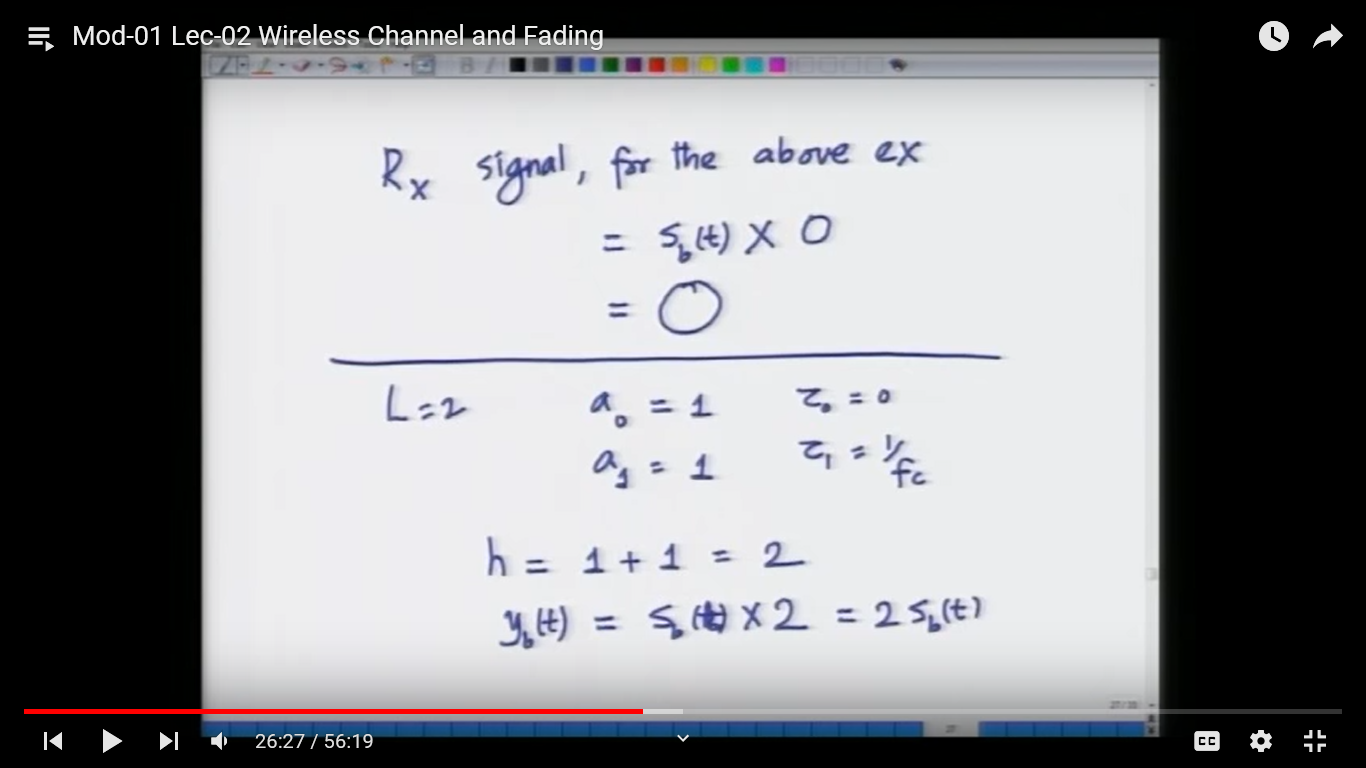 Mod-01 Lec-02 Wireless Channel and Fading
B I
Rx signal, for the above ex
= s_b(t) X 0
= 0
L=2 a_0 = 1 τ_0 = 0
a_1 = 1 τ_1 = 1/fc
h = 1 + 1 = 2
y_b(t) = s_b(t) X 2 = 2 s_b(t)
26:27 / 56:19
CC